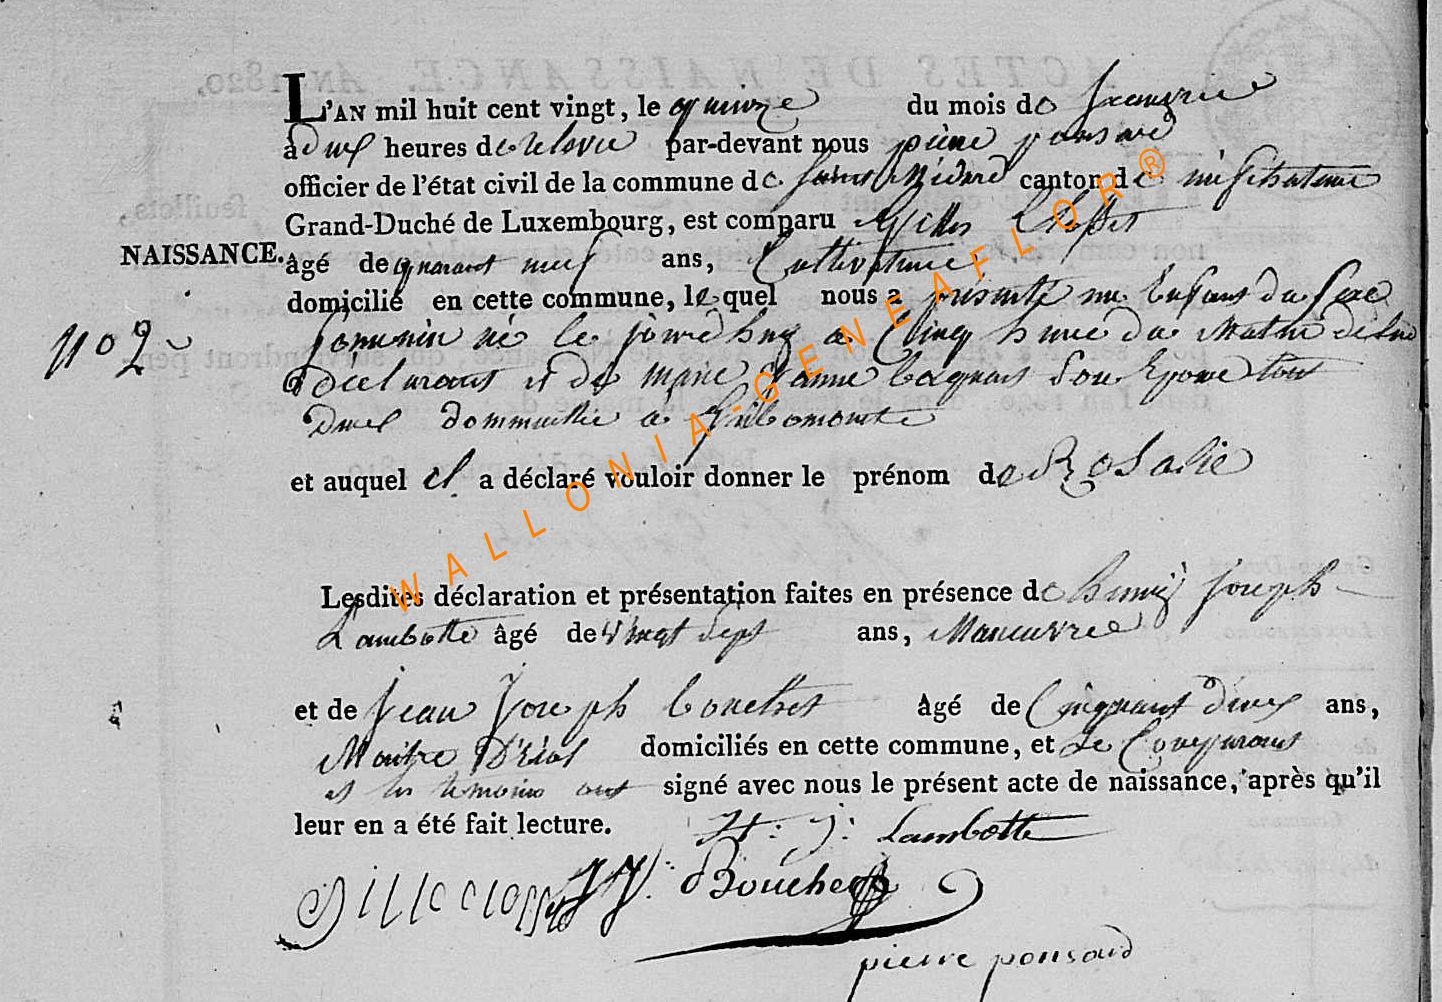 L'AN mil huit cent vingt, le quinze du mois de Janvrie
a dix heures de relevée par-devant nous pierre ponsard
officier de l'état civil de la commune de saint Médard canton de
Grand-Duché de Luxembourg, est comparu Gilles
NAISSANCE. âgé de quarant neuf ans, Cultivateur
domicilié en cette commune, le quel nous a presenté un Enfant du sexe
N° 2 né le jourdhuy a Cinq hure du Matin de lui
Déclarant et de Marie Jeanne son Epouse tout
deux à
et auquel il a déclaré vouloir donner le prénom de Rosalie
Lesdites déclaration et présentation faites en présence de henry Joseph
Lambotte âgé de vingt sept ans, Maneuvre
et de Jean Joseph âgé de Cinquant deux ans,
Maitre domiciliés en cette commune, et le Comparant
et les temoins ont signé avec nous le présent acte de naissance, après qu'il
leur en a été fait lecture. H: J: Lambotte
J J. Bouchez
pierre ponsard
WALLONIA-GENEAFLOR®